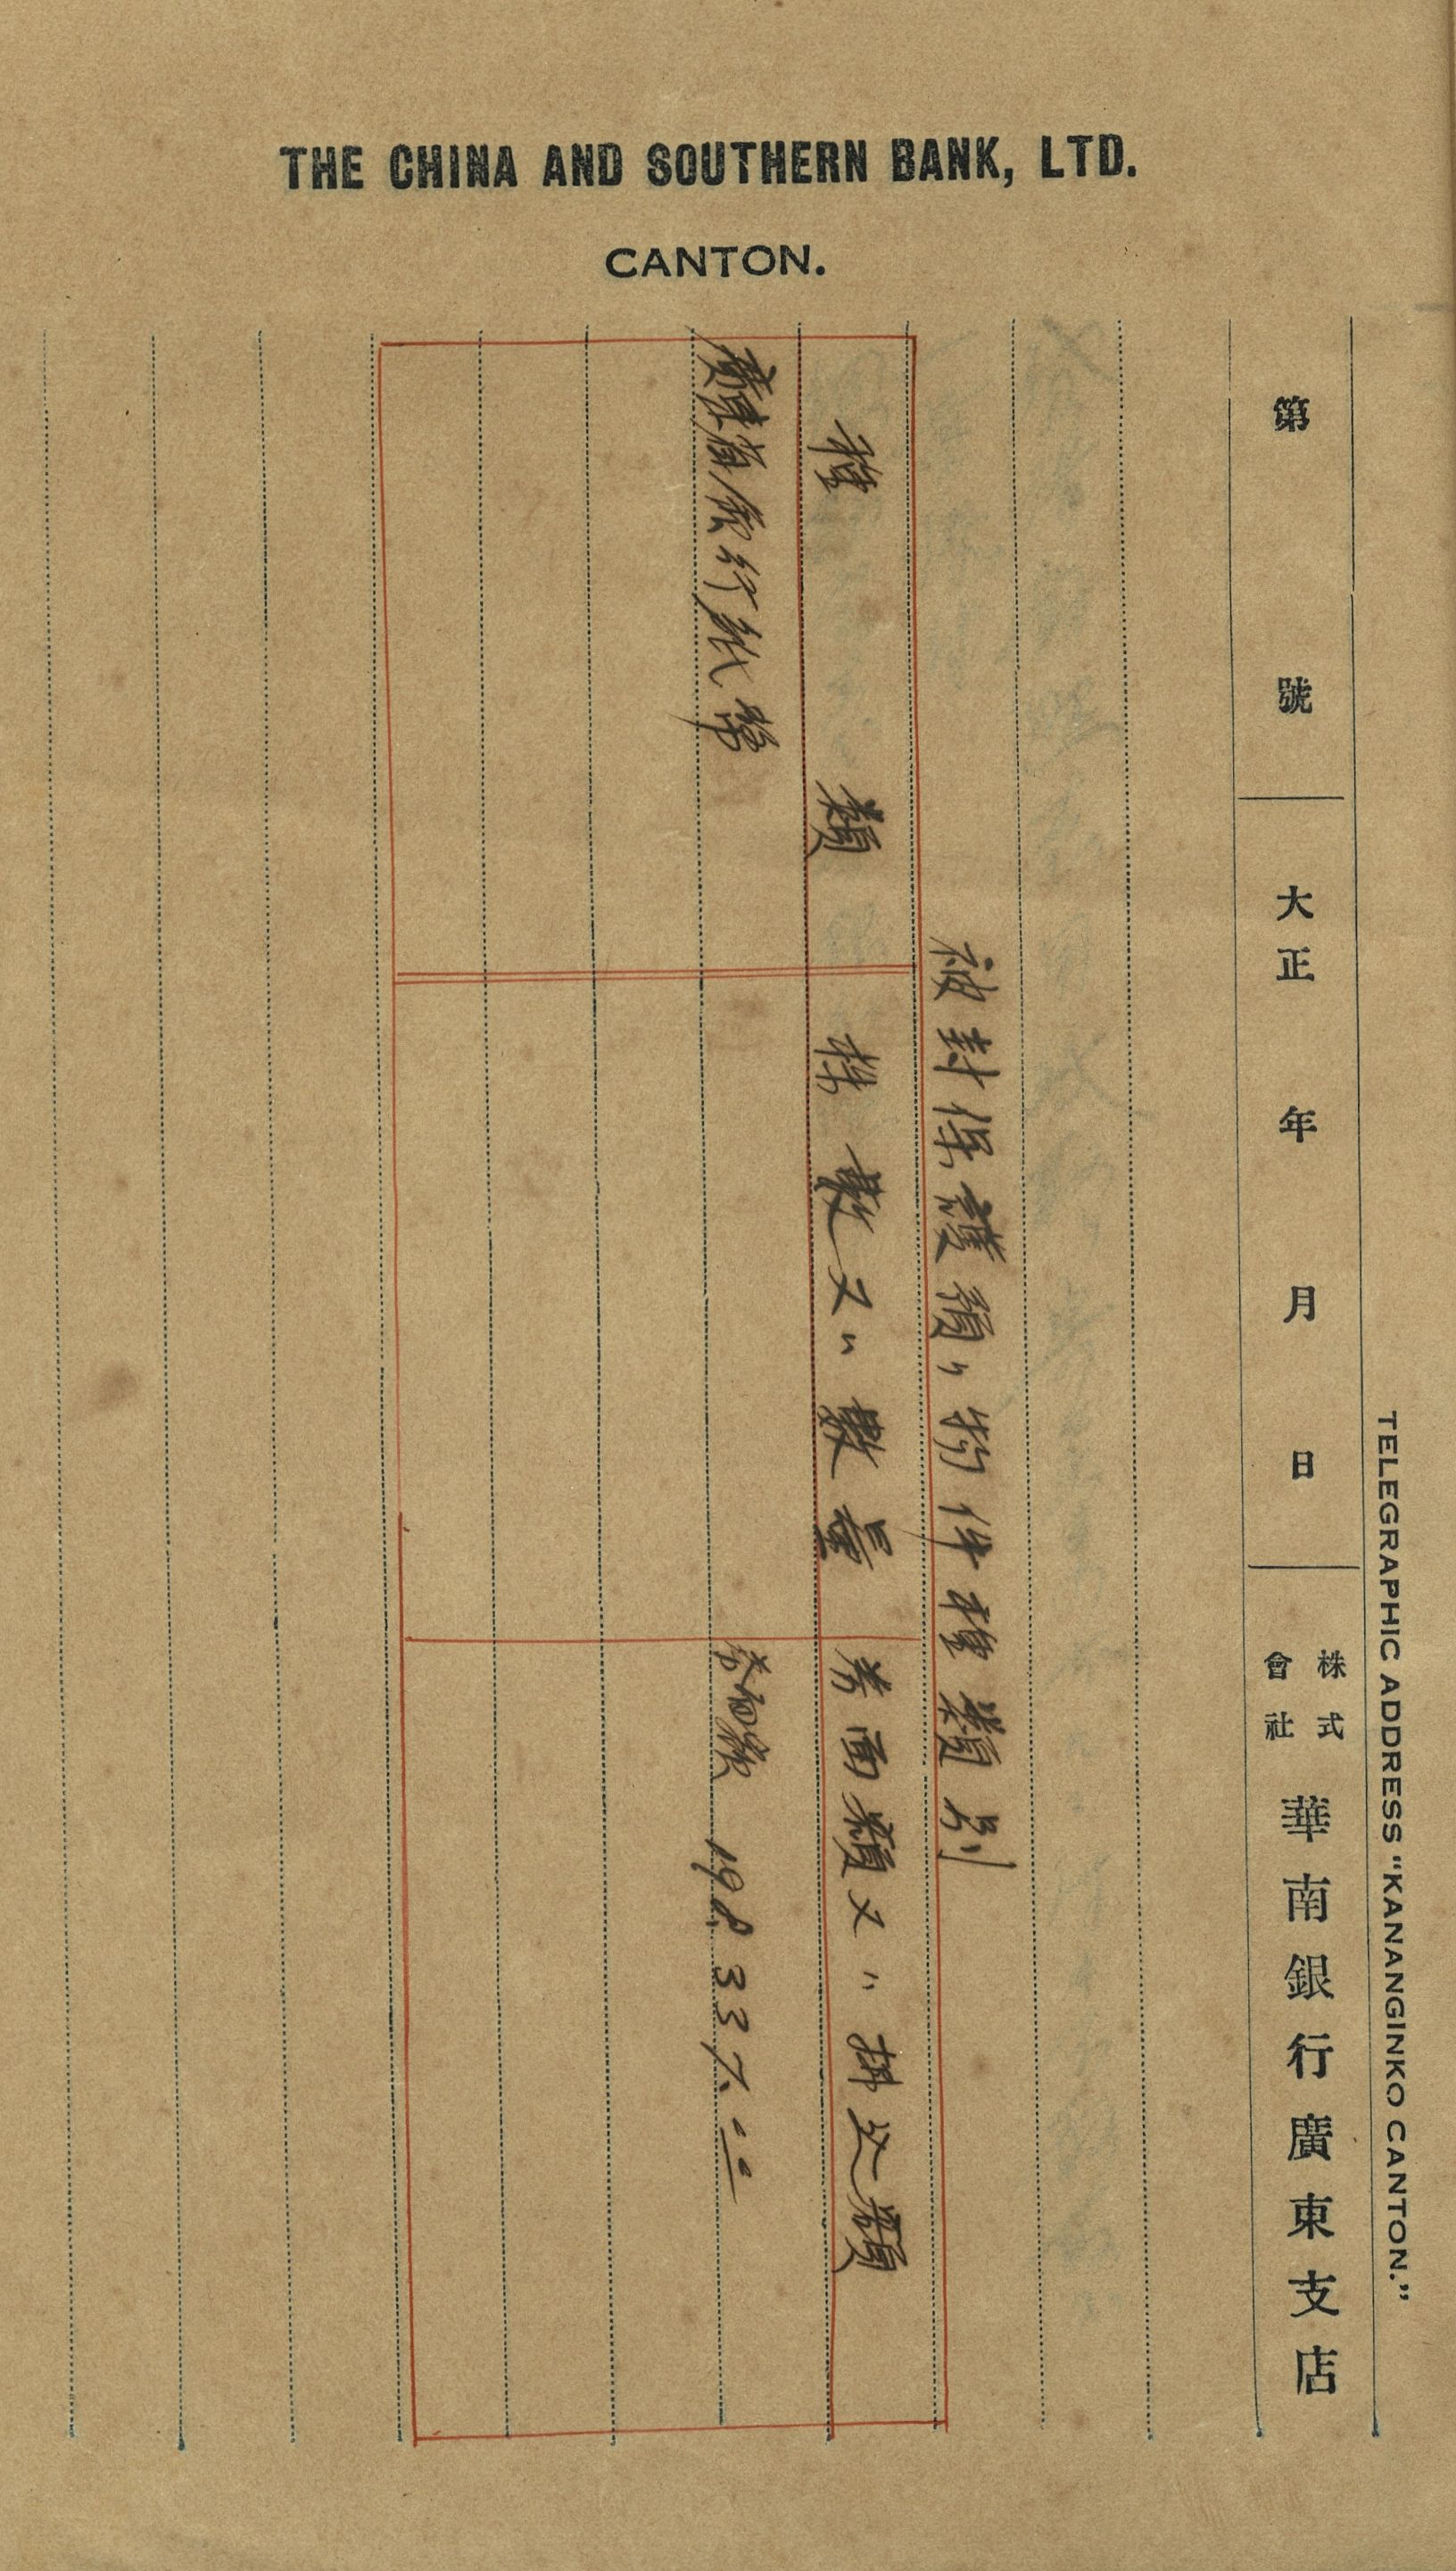 THE CHINA AND SOUTHERN BANK, LTD.
CANTON.
TELEGRAPHIC ADDRESS “KANANGINKO CANTON.”
第 號 大正 年 月 日 株式會社 華南銀行廣東支店
被封保護預ヶ物件種類別
種類
株數又ハ數量
券面額又ハ拂込額
廣東省銀行紙幣
券面額 198.337.00